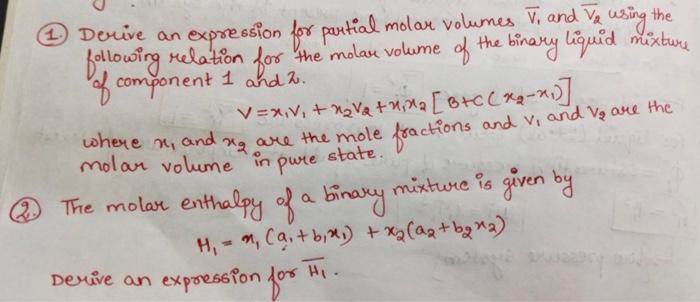 ① Derive an expression for partial molar volumes V̄₁ and V̄₂ using the
following relation for the molar volume of the binary liquid mixture
of component 1 and 2.
V = x₁V₁ + x₂V₂ + x₁x₂ [B + C (x₂ - x₁)]
where x₁ and x₂ are the mole fractions and V₁ and V₂ are the
molar volume in pure state.
② The molar enthalpy of a binary mixture is given by
H₁ = x₁ (a₁ + b₁x₁) + x₂ (a₂ + b₂x₂)
Derive an expression for H̄₁.